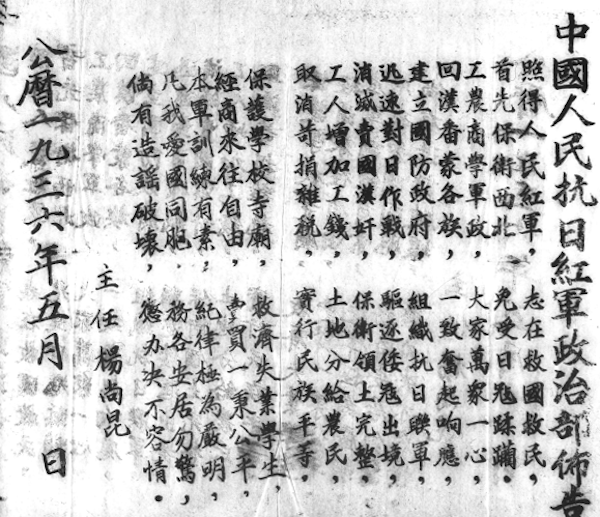 中國人民抗日紅軍政治部佈告
照得人民紅軍,志在救國救民,
首先保衛西北,免受日冦蹂躪。
工農商學軍政,大家萬衆一心,
回漢番蒙各族,一致奮起响應,
建立國防政府,組織抗日聯軍,
迅速對日作戰,驅逐倭冦出境,
消滅賣國漢奸,保衛領土完整。
工人增加工錢,土地分給農民,
取消苛捐雜税,實行民族平等。
保護學校寺廟,救濟失業學生,
經商來往自由,賣買一秉公平,
本軍訓練有素,紀律極為嚴明,
凡我愛國同胞,務各安居勿驚,
倘有造謠破壞,懲办决不容情。
主任 楊尚昆
公曆一九三六年五月 日